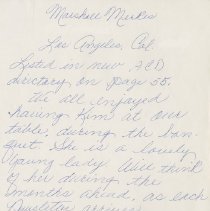 Marshall Meeker
Los Angeles, Cal.
Listed in new ICD
directory, on page 55.
We all enjoyed
having Kim at our
table, during the ban-
quet She is a lovely
young lady. Will think
of her during the
months ahead, as each
Newsletter arrives